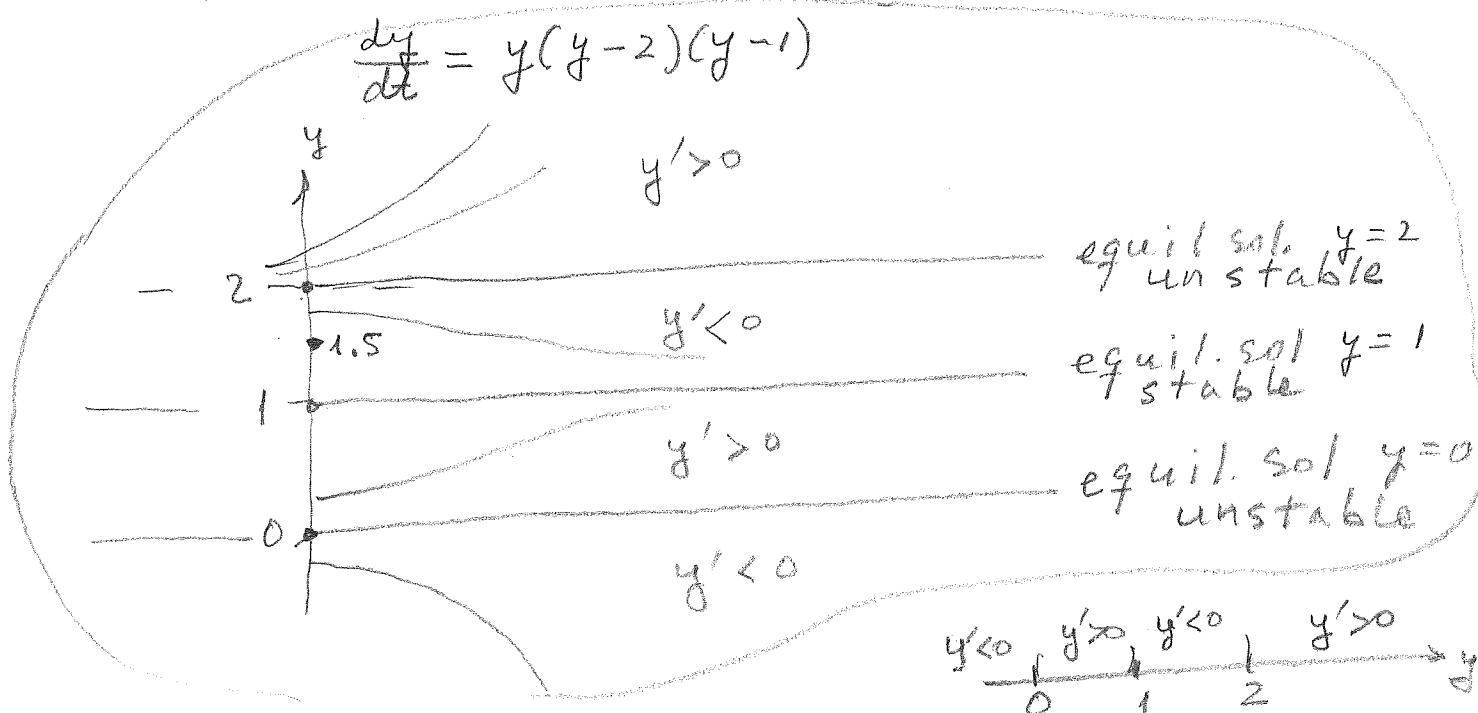 dy/dt = y(y-2)(y-1)
y
y'>0
equil sol. y=2
unstable
2
y'<0
1.5
equil. sol y=1
stable
1
y'>0
equil. sol y=0
unstable
0
y'<0
y'<0 y'>0 y'<0 y'>0
y
0 1 2